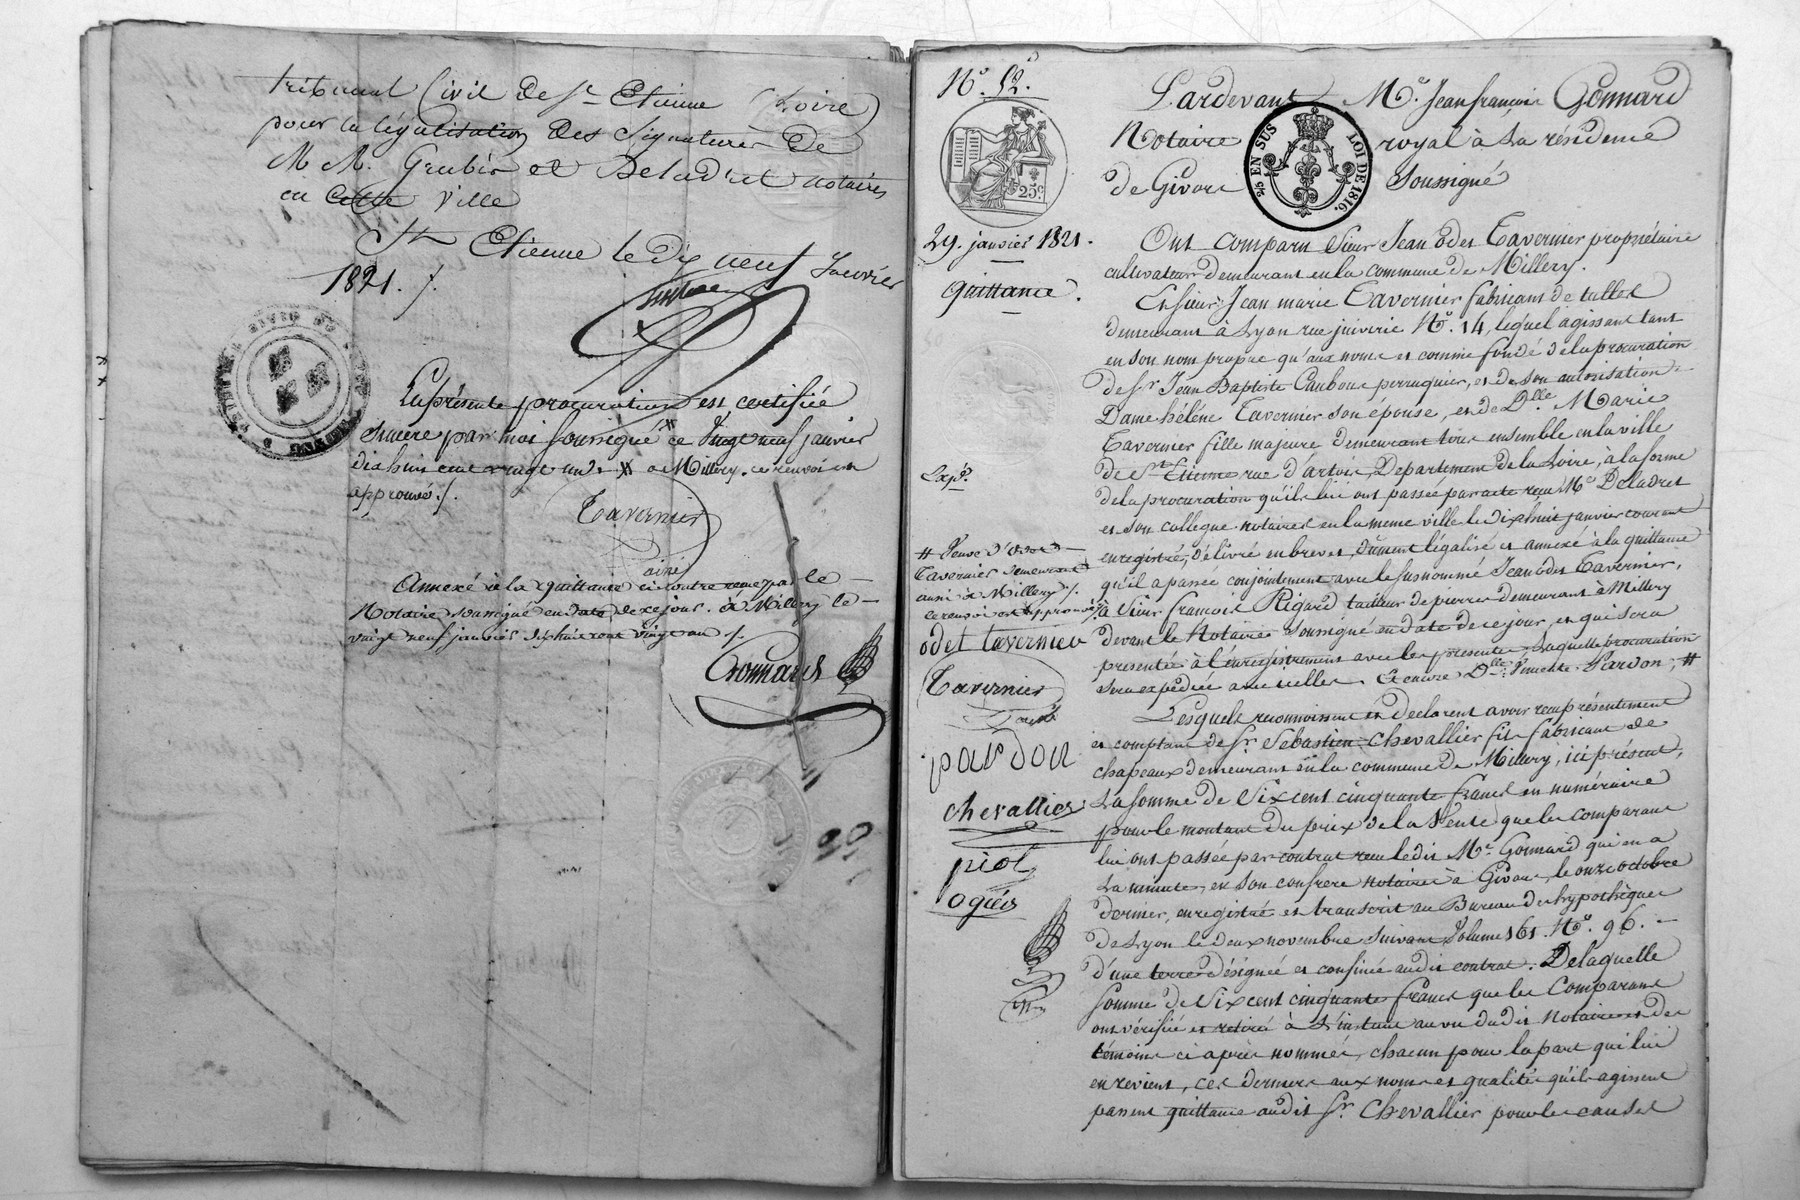 tribunal Civil De St Etienne (Loire)
pour la légalisation des Signatures De
M M. Grubis et Deladret notaires
en Cette Ville
St Etienne le Dix neuf Janvier
1821. /.
La présente procuration est certifiée
Sincere par moi Soussigné ce Vingt neuf janvier
dix huit cent vingt un. à Millery. ce renvoi
approuvé./.
Tavernier
ainé
Annexé à la quittance ci contre reçue par le
Notaire soussigné en date de ce jour. à Millery le
vingt neuf janvier dix huit cent vingt un /.
Gonnard
No. 52.
25c.
29. janvier 1821.
Quittance.
Expé.
# Veuve d'Odet
Tavernier demeurant
aussi à Millery /.
ce renvoi est approuvé /.
odet tavernier
Tavernier
Lainé
pardon
chevallier
piot
ogier
Pardevant Me. Jean françois Gonnard
Notaire royal à La résidence
de Givors Soussigné
25 EN SUS LOI DE 1816.
Ont comparu Sieur Jean Odet Tavernier propriétaire
cultivateur demeurant en la commune de Millery.
Et Sieur Jean marie Tavernier fabricant de tulles
demeurant à Lyon rue juiverie No. 14, lequel agissant tant
en son nom propre qu'aux noms et comme fondé de la procuration
de Sr. Jean Baptiste Caubous perruquier, et de son autorisation
Dame hélène Tavernier son épouse, et de Dlle. Marie
Tavernier fille majeure demeurant tous ensemble en la ville
de St. Etienne rue d'artois, Département de la Loire, à la forme
de la procuration qu'ils lui ont passée par acte reçu Me Deladret
et son collegue notaires en la meme ville le dix huit janvier courant
enregistré, délivré en brevet, dûment légalisé et annexé à la quittance
qu'il a passée conjointement avec le susnommé Jean Odet Tavernier,
à Sieur françois Rigard tailleur de pierres demeurant à Millery
devant le Notaire Soussigné en date de ce jour, et qui sera
presentée à l'enregistrement avec les presentes, Laquelle procuration
sera expédiée avec icelles. Et encore Dlle. Pardon, #
Lesquels reconnoissent et declarent avoir reçu présentement
et comptant de Sr. Sebastien Chevallier fils fabricant de
chapeaux demeurant en la commune de Millery, ici présent,
La somme de Six cent cinquante francs en numéraire
pour le montant du prix de la Vente que les comparans
lui ont passée par contrat reçu ledit Me. Gonnard qui en a
La minute, et son confrere notaires à Givors, le onze octobre
dernier, enregistré et transcrit au Bureau des hypothèques
de Lyon le deux novembre suivant, Volume 161. No. 96.
d'une terre désignée et confinée audit contrat. De laquelle
somme de Six cent cinquante francs que les Comparans
ont vérifié et retiré à L'instant au vu dudit Notaire et des
témoins ci après nommés, chacun pour la part qui lui
en revient, ces derniers aux noms et qualités qu'ils agissent
passent quittance audit Sr. Chevallier pour les causes